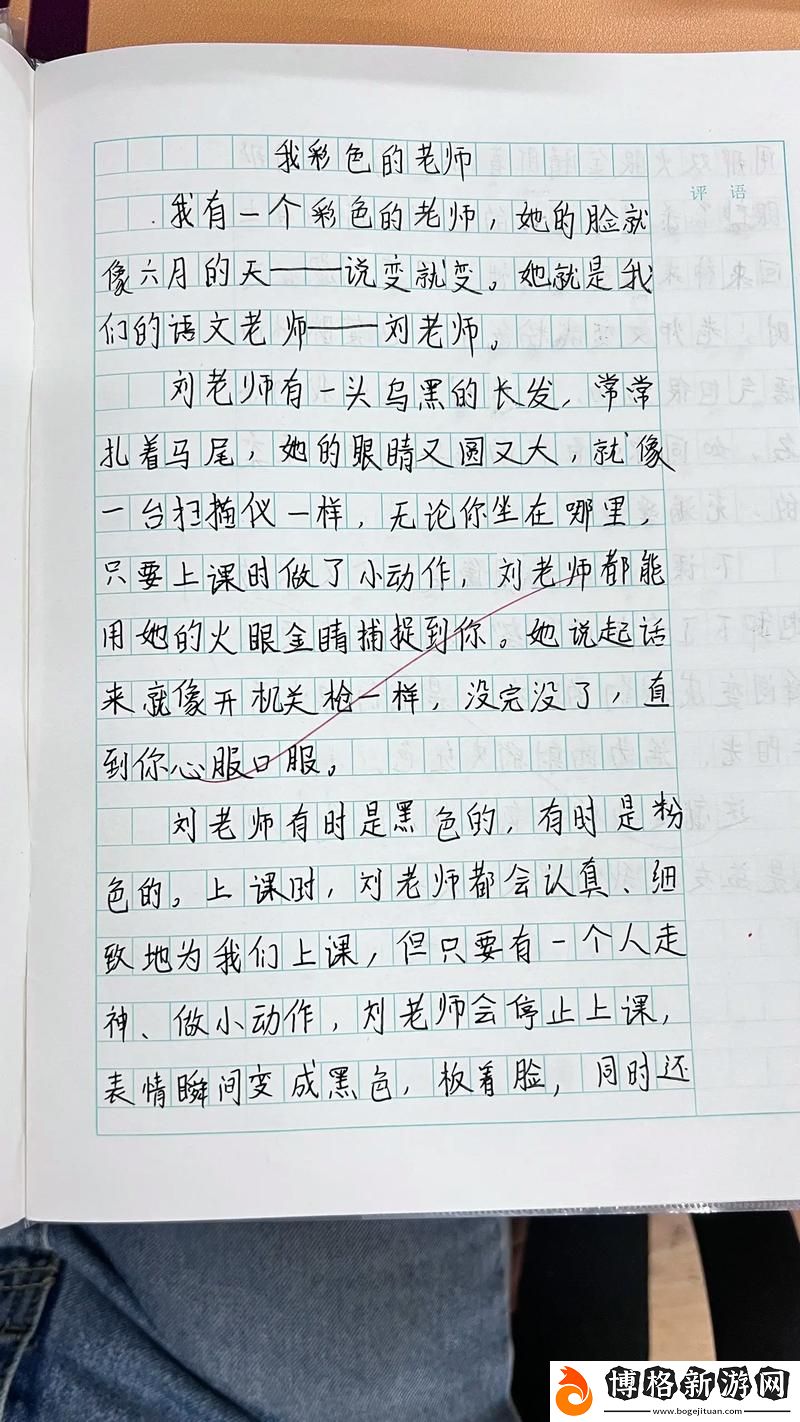 我彩色的老师
评语
我有一个彩色的老师，她的脸就
像六月的天——说变就变。她就是我
们的语文老师——刘老师。
刘老师有一头乌黑的长发，常常
扎着马尾，她的眼睛又圆又大，就像
一台扫描仪一样，无论你坐在哪里，
只要上课时做了小动作，刘老师都能
用她的火眼金睛捕捉到你。她说起话
来就像开机关枪一样，没完没了，直
到你心服口服。
刘老师有时是黑色的，有时是粉
色的。上课时，刘老师都会认真、细
致地为我们上课，但只要有一个人走
神、做小动作，刘老师会停止上课，
表情瞬间变成黑色，板着脸，同时还
博格新游网
www.bogejituan.com